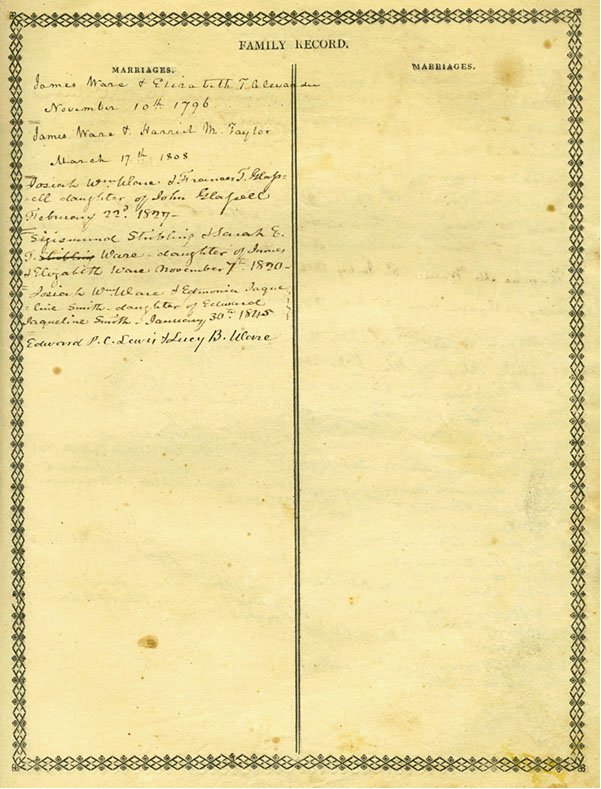 FAMILY RECORD.
MARRIAGES.
James Ware & Elizabeth T. Alexander
November 10th 1796
James Ware & Harriet M. Taylor
March 17th 1808
Josiah Wm Ware & Frances T. Glass-
ell daughter of John Glassell
February 22d 1827-
Sigismund Stribling & Sarah E.
T. Stribling Ware - daughter of James
& Elizabeth Ware November 7th 1820-
Josiah Wm Ware & Edmonia Jaque
line Smith - daughter of Edward
Jaqueline Smith - January 30th 1845
Edward P. C. Lewis & Lucy B. Ware
MARRIAGES.